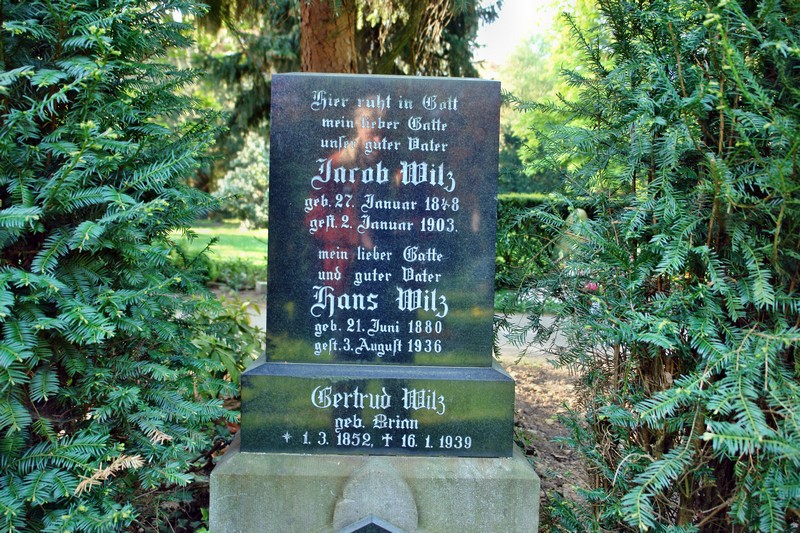 Hier ruht in Gott
mein lieber Gatte
unser guter Vater
Jacob Wilz
geb. 27. Januar 1848
gest. 2. Januar 1903.
mein lieber Gatte
und guter Vater
Hans Wilz
geb. 21. Juni 1880
gest. 3. August 1936
Gertrud Wilz
geb. Brian
* 1. 3. 1852, ✝ 16. 1. 1939